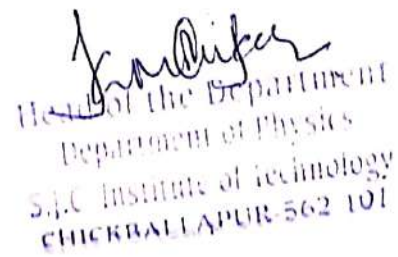 Head of the Department
Department of Physics
S.J.C Institute of Technology
CHICKBALLAPUR-562 101